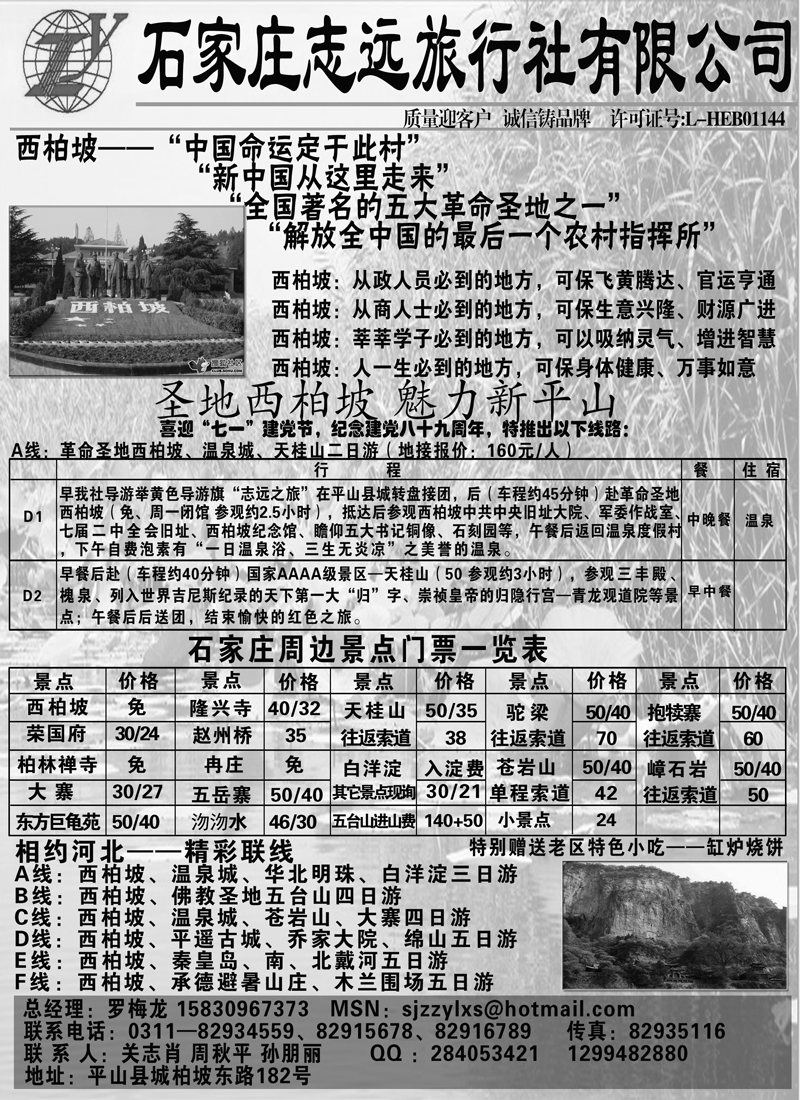 石家庄志远旅行社有限公司
质量迎客户 诚信铸品牌 许可证号:L-HEB01144
西柏坡——“中国命运定于此村”
“新中国从这里走来”
“全国著名的五大革命圣地之一”
“解放全中国的最后一个农村指挥所”
西柏坡
西柏坡：从政人员必到的地方，可保飞黄腾达、官运亨通
西柏坡：从商人士必到的地方，可保生意兴隆、财源广进
西柏坡：莘莘学子必到的地方，可以吸纳灵气、增进智慧
西柏坡：人一生必到的地方，可保身体健康、万事如意
圣地西柏坡 魅力新平山
喜迎“七一”建党节，纪念建党八十九周年，特推出以下线路：
A线：革命圣地西柏坡、温泉城、天桂山二日游（地接报价：160元/人）
行 程 餐 住宿
D1 早我社导游举黄色导游旗“志远之旅”在平山县城转盘接团，后（车程约45分钟）赴革命圣地
西柏坡（免、周一闭馆 参观约2.5小时），抵达后参观西柏坡中共中央旧址大院、军委作战室、
七届二中全会旧址、西柏坡纪念馆、瞻仰五大书记铜像、石刻园等，午餐后返回温泉度假村
，下午自费泡素有“一日温泉浴、三生无炎凉”之美誉的温泉。
中晚餐 温泉
D2 早餐后赴（车程约40分钟）国家AAAA级景区—天桂山（50 参观约3小时），参观三丰殿、
槐泉、列入世界吉尼斯纪录的天下第一大“归”字、崇祯皇帝的归隐行宫—青龙观道院等景
点；午餐后后送团，结束愉快的红色之旅。
早中餐
石家庄周边景点门票一览表
景点 价格 景点 价格 景点 价格 景点 价格 景点 价格
西柏坡 免 隆兴寺 40/32 天桂山 50/35 驼梁 50/40 抱犊寨 50/40
荣国府 30/24 赵州桥 35 往返索道 38 往返索道 70 往返索道 60
柏林禅寺 免 冉庄 免 白洋淀 入淀费 苍岩山 50/40 嶂石岩 50/40
大寨 30/27 五岳寨 50/40 其它景点现询 30/21 单程索道 42 往返索道 50
东方巨龟苑 50/40 沕沕水 46/30 五台山进山费 140+50 小景点 24
相约河北——精彩联线
特别赠送老区特色小吃——缸炉烧饼
A线：西柏坡、温泉城、华北明珠、白洋淀三日游
B线：西柏坡、佛教圣地五台山四日游
C线：西柏坡、温泉城、苍岩山、大寨四日游
D线：西柏坡、平遥古城、乔家大院、绵山五日游
E线：西柏坡、秦皇岛、南、北戴河五日游
F线：西柏坡、承德避暑山庄、木兰围场五日游
总经理：罗梅龙 15830967373 MSN：sjzzylxs@hotmail.com
联系电话：0311—82934559、82915678、82916789 传真：82935116
联系人：关志肖 周秋平 孙朋丽 QQ：284053421 1299482880
地址：平山县城柏坡东路182号